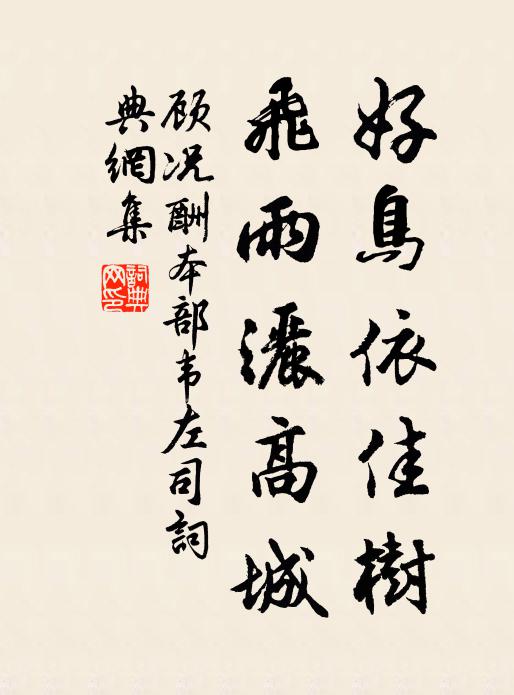 好鳥依佳樹
飛雨灑高城
顾况酬本部韦左司詞
典網集
詞典
网印